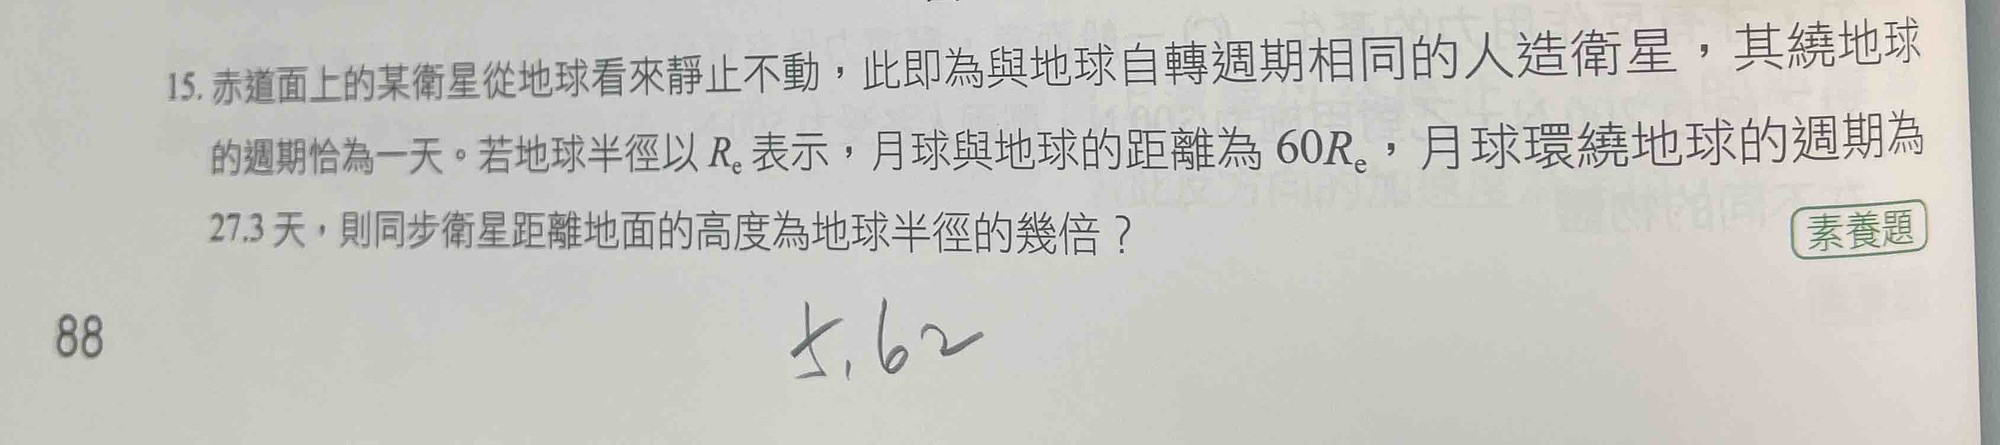 15. 赤道面上的某衛星從地球看來靜止不動，此即為與地球自轉週期相同的人造衛星，其繞地球
的週期恰為一天。若地球半徑以 Re 表示，月球與地球的距離為 60Re，月球環繞地球的週期為
27.3 天，則同步衛星距離地面的高度為地球半徑的幾倍？
素養題
5.62
88